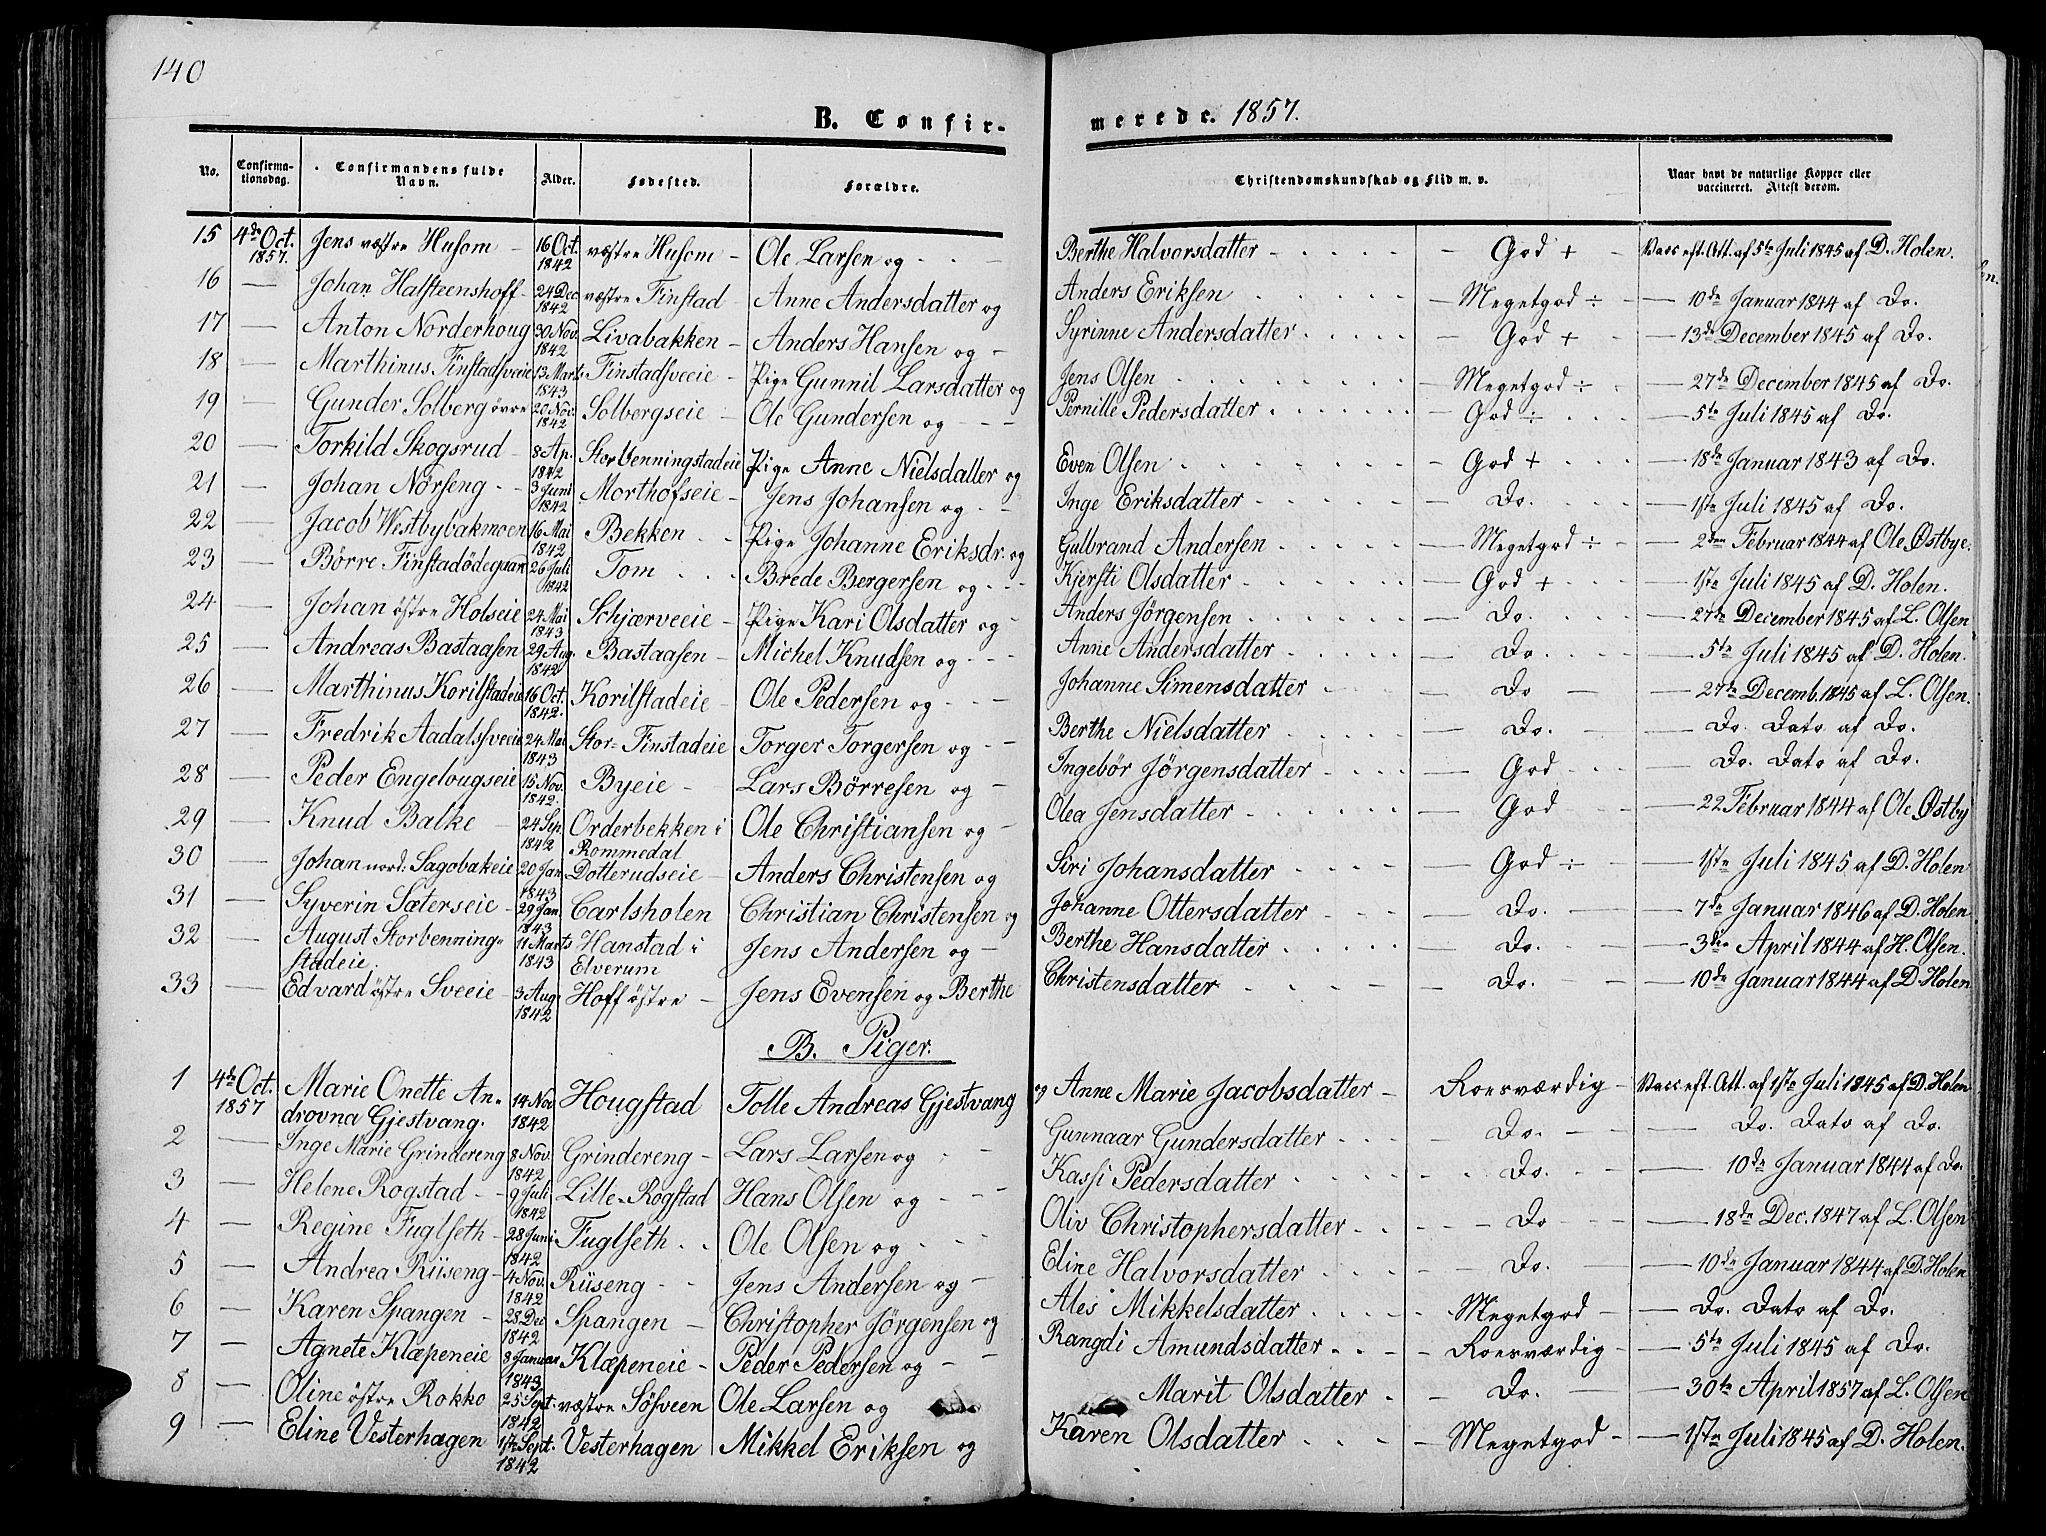 140
B. Confirmerede. 1857.
No. Confirmationsdag. Confirmandens fulde Navn. Alder. Fødested. Forældre. Christendomskundskab og Flid m. v. Naar havt de naturlige Kopper eller vaccineret. Attest derom.
15 4de Oct. 1857. Jens væstre Husom 16 Oct. 1842 væstre Husom Ole Larsen og Berthe Halvorsdatter God + Vacc eft. Att. af 5te Juli 1845 af D. Holen.
16 — Johan Halsteenshoff 24 Dec 1842 væstre Finstad Anne Andersdatter og Anders Eriksen Megetgod ÷ — 10de Januar 1844 af Do.
17 — Anton Norderhoug 30 Nov. 1842 Livabakken Anders Hansen og Syrinne Andersdatter God + — 13de December 1845 af Do.
18 — Marthinus Finstadsveie 13 Marts 1843 Finstadsveeie Pige Gunnil Larsdatter og Jens Olsen Megetgod ÷ — 27de December 1845 af Do.
19 — Gunder Solberg øvre 20 Nov. 1842 Solbergseie Ole Gundersen og Pernille Pedersdatter God ÷ — 5te Juli 1845 af Do.
20 — Torkild Skogsrud 8 Ap. 1842 Storbenningstadeie Pige Anne Nielsdatter og Even Olsen God + — 18de Januar 1843 af Do.
21 — Johan Nørseng 3 Juni 1842 Morthofseie Jens Johansen og Inge Eriksdatter Do. — 1ste Juli 1845 af Do.
22 — Jacob Westbybakmoen 16 Mai 1842 Bekken Pige Johanne Eriksdr. og Gulbrand Andersen Megetgod ÷ — 2den Februar 1844 af Ole Østbye.
23 — Børre Finstadødegaard 26 Juli 1842 Tom Brede Bergersen og Kjersti Olsdatter God + — 1ste Juli 1845 af D. Holen.
24 — Johan østre Holseie 24 Mai 1843 Schjærveeie Pige Kari Olsdatter og Anders Jørgensen Do. — 27de December 1845 af L. Olsen
25 — Andreas Bastaasen 29 Aug. 1842 Bastaasen Michel Knudsen og Anne Andersdatter Do. — 5te Juli 1845 af D. Holen.
26 — Marthinus Korilstadeie 16 Oct. 1842. Korilstadeie Ole Pedersen og Johanne Simensdatter Do — 27de Decemb. 1845 af L. Olsen.
27 — Fredrik Aadalssveeie 24 Mai 1843 Stor=Finstadeie Torger Torgersen og Berthe Nielsdatter Do. — Do. Dato af Do.
28 — Peder Engelougseie 15 Nov. 1842. Byeie Lars Børresen og Ingebør Jørgensdatter God Do. Dato af Do.
29 — Knud Balke 24 Sep. 1842 Orderbekken i Rommedal Ole Christiansen og Olea Jensdatter God — 22 Februar 1844 af Ole Østby
30 — Johan nord: Sagobakeie 20 Jan 1843 Dotterudseie Anders Christensen og Siri Johansdatter God ÷ — 1ste Juli 1845 af D. Holen
31 — Syverin Sæterseie 29 Jan. 1843 Carlsholen Christian Christensen og Johanne Ottersdatter Do. — 7de Januar 1846 af D. Holen
32 — August Storbenningstadeie. 11 Marts 1843 Hanstad i Elverum Jens Andersen og Berthe Hansdatter Do. — 3die April 1844 af H. Olsen.
33 — Edvard østre Sveeie 3 Aug 1842 Hoff østre Jens Evensen og Berthe Christensdatter Do. — 10de Januar 1844 af D. Holen
B. Piger.
1 4de Oct. 1857 Marie Onette Androvna Gjestvang. 14 Nov 1842 Hougstad Tolle Andreas Gjestvang og Anne Marie Jacobsdatter Roesværdig Vacc eft. Att. af 1ste Juli 1845 af D. Holen
2 — Inge Marie Grindereng 8 Nov. 1842 Grindereng Lars Larsen og Gunnaar Gundersdatter Do. — Do. Dato af Do.
3 — Helene Rogstad 9 Juli 1842 Lille=Rogstad Hans Olsen og Kassi Pedersdatter Do. — 10de Januar 1844 af Do.
4 — Regine Fuglseth 28 Juni 1842 Fuglseth Ole Olsen og Oliv Christophersdatter Do — 18de Dec. 1847 af L. Olsen
5 — Andrea Riiseng 4 Nov. 1842 Riiseng Jens Andersen og Eline Halvorsdatter Do. — 10de Januar 1844 af D. Holen
6 — Karen Spangen 28 Dec 1842 Spangen Christopher Jørgensen og Ales Mikkelsdatter Megetgod — Do. Dato af Do.
7 — Agnete Klæpeneie 8 Januar 1843 Klæpeneie Peder Pedersen og Rangdi Amundsdatter Roesværdig — 5te Juli 1845 af Do.
8 — Oline østre Rokko 25 Sept. 1842 væstre Sösveen Ole Larsen og Marit Olsdatter Do. — 30te April 1857 af L. Olsen
9 — Eline Vesterhagen 17 Sept. 1842 Vesterhagen Mikkel Eriksen og Karen Olsdatter Megetgod — 1ste Juli 1845 af D. Holen.